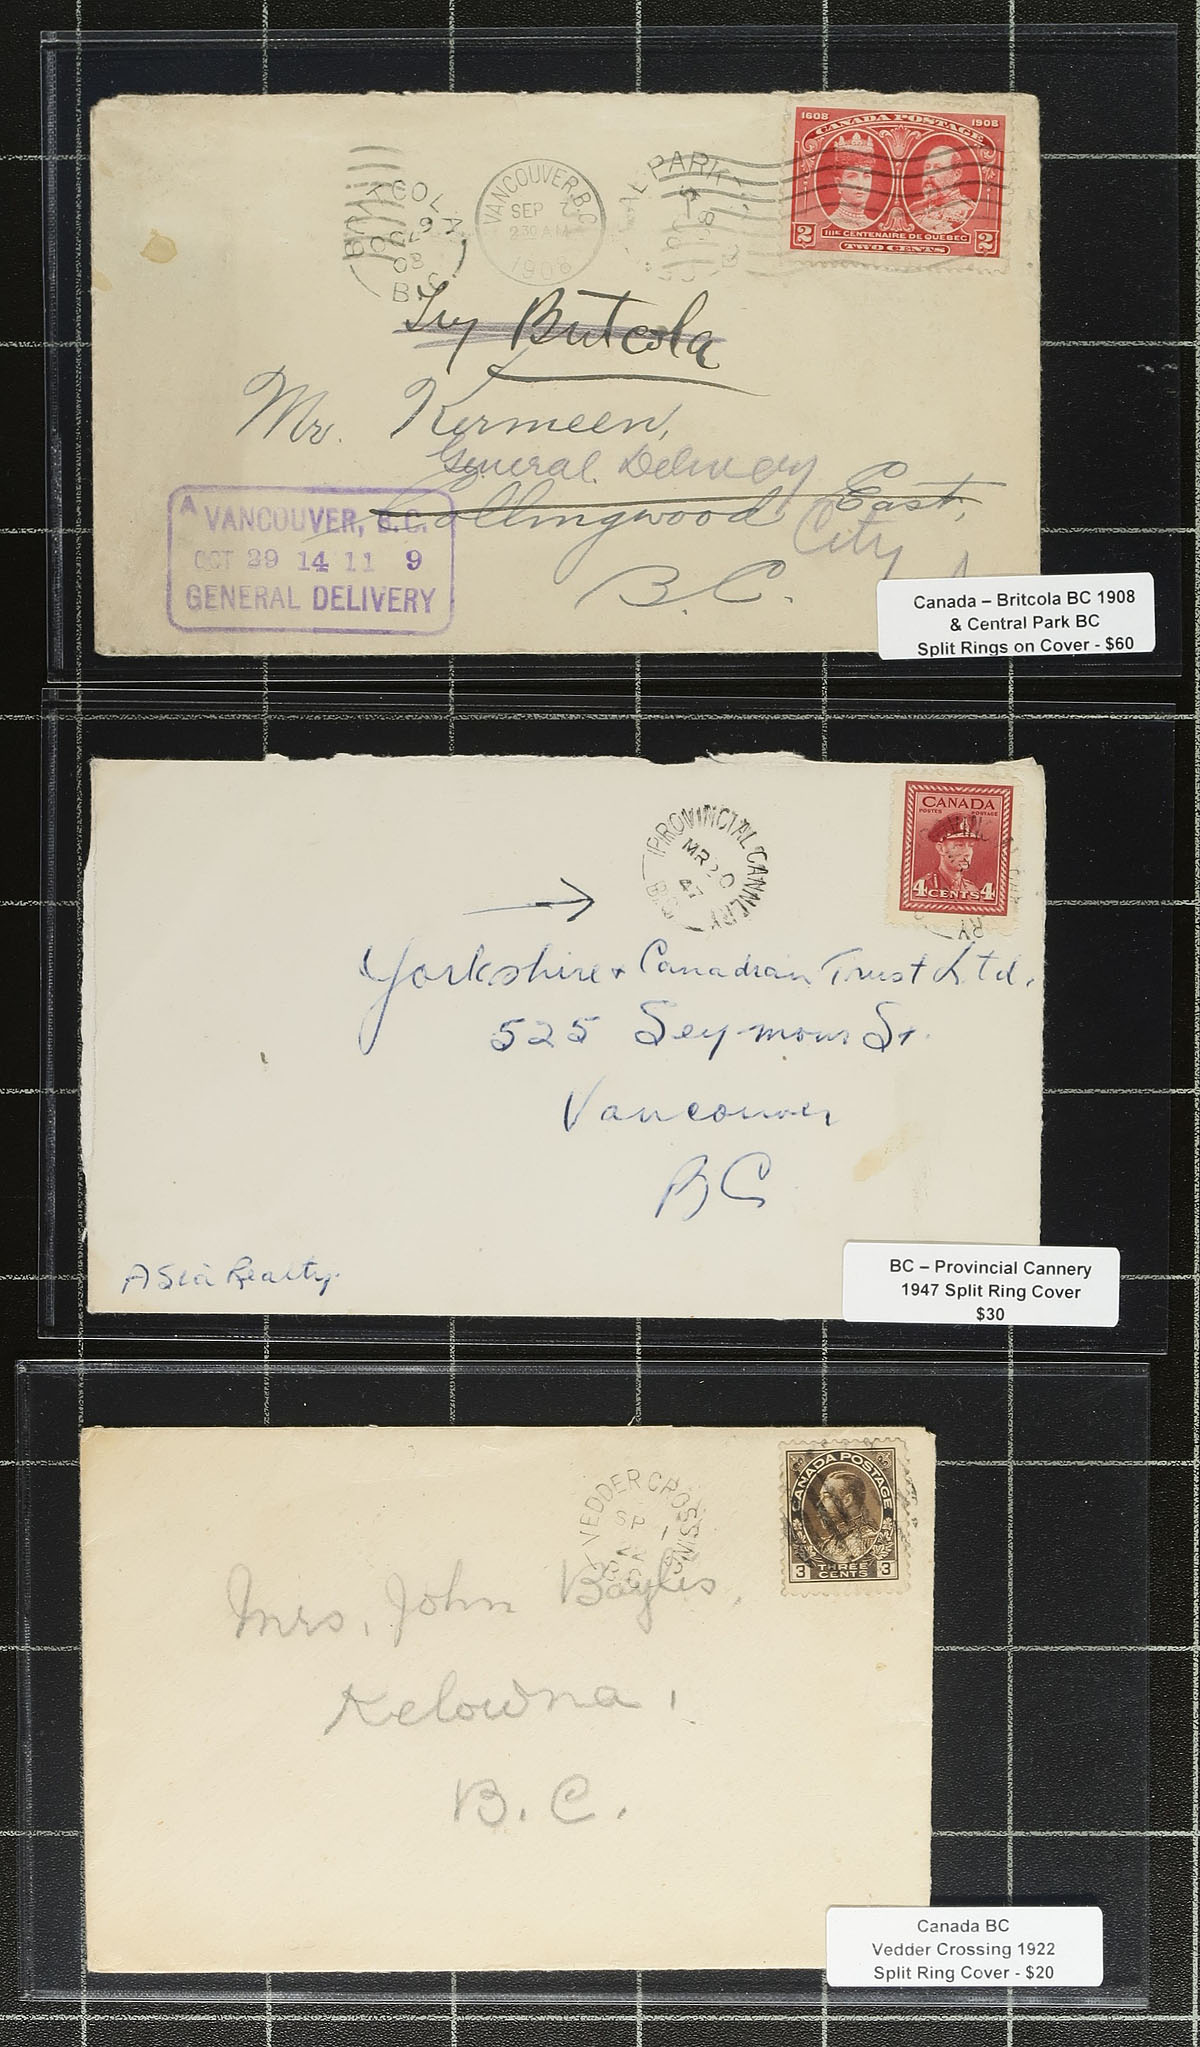 1608 1908
CANADA POSTAGE
IIIE CENTENAIRE DE QUÉBEC
2 TWO CENTS 2
VANCOUVER. B.C.
SEP
2 30 AM
1908
AL PARK
B
TCOLA
OC 29
08
B.C.
Try Britcola
Mr. Kermeen,
General Delivery
Collingwood East,
City
B.C.
A VANCOUVER, B.C.
OCT 29 14 11 9
GENERAL DELIVERY
Canada – Britcola BC 1908
& Central Park BC
Split Rings on Cover - $60
CANADA
POSTES POSTAGE
4 CENTS 4
PROVINCIAL CANNERY
MR 20
47
B.C.
RY
Yorkshire & Canadian Trust Ltd.
525 Seymour St.
Vancouver
BC
Asia Realty.
BC – Provincial Cannery
1947 Split Ring Cover
$30
CANADA POSTAGE
3 THREE CENTS 3
VEDDER CROSSING
SP
Mrs. John Bayles,
Kelowna,
B.C.
Canada BC
Vedder Crossing 1922
Split Ring Cover - $20